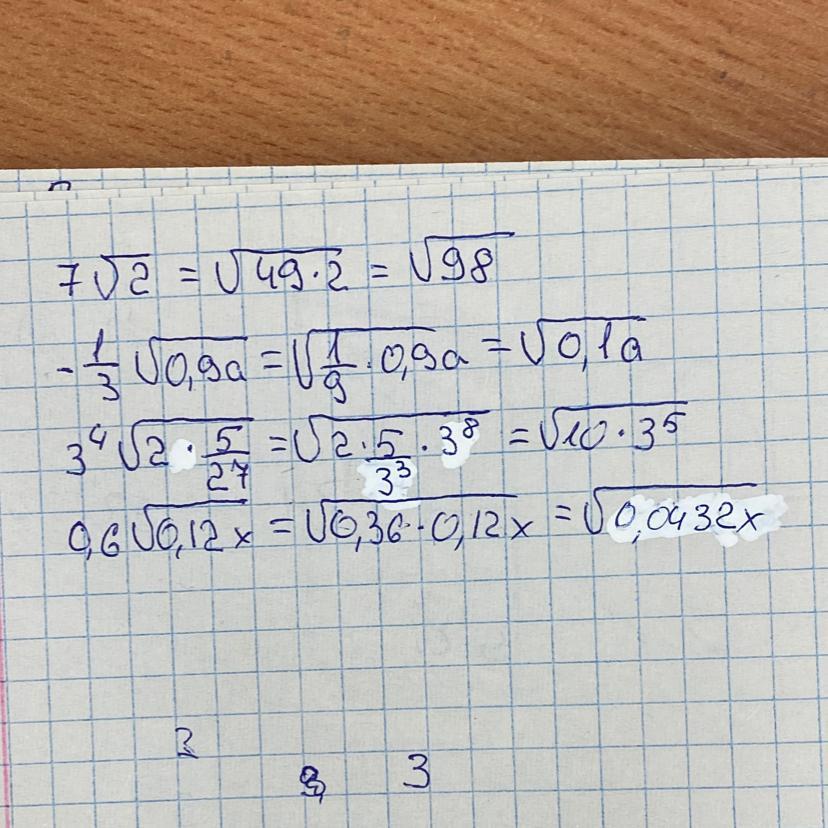 7√2 = √49·2 = √98
-1/3 √0,9a = √1/9 · 0,9a = √0,1a
3⁴ √2 · 5/27 = √2 · 5/3³ · 3⁸ = √10 · 3⁵
0,6√0,12x = √0,36 · 0,12x = √0,0432x
3